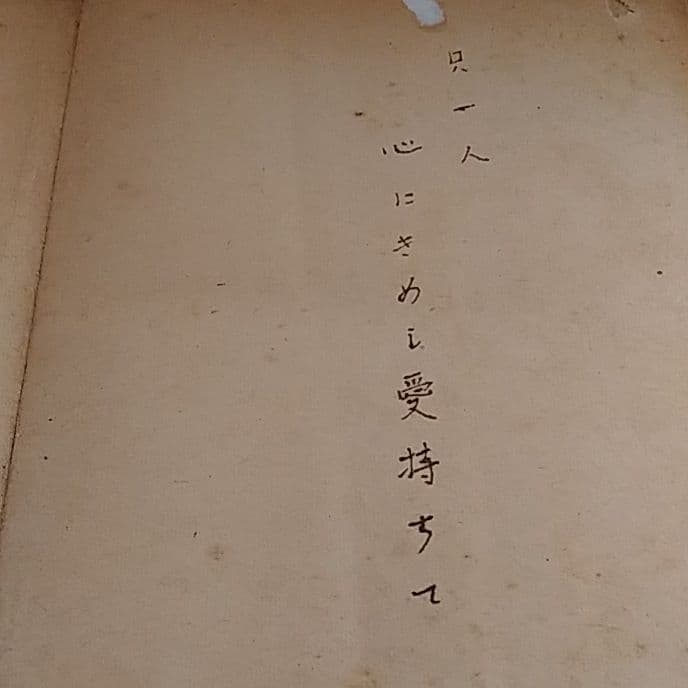 只一人
心にきめし愛持ちて